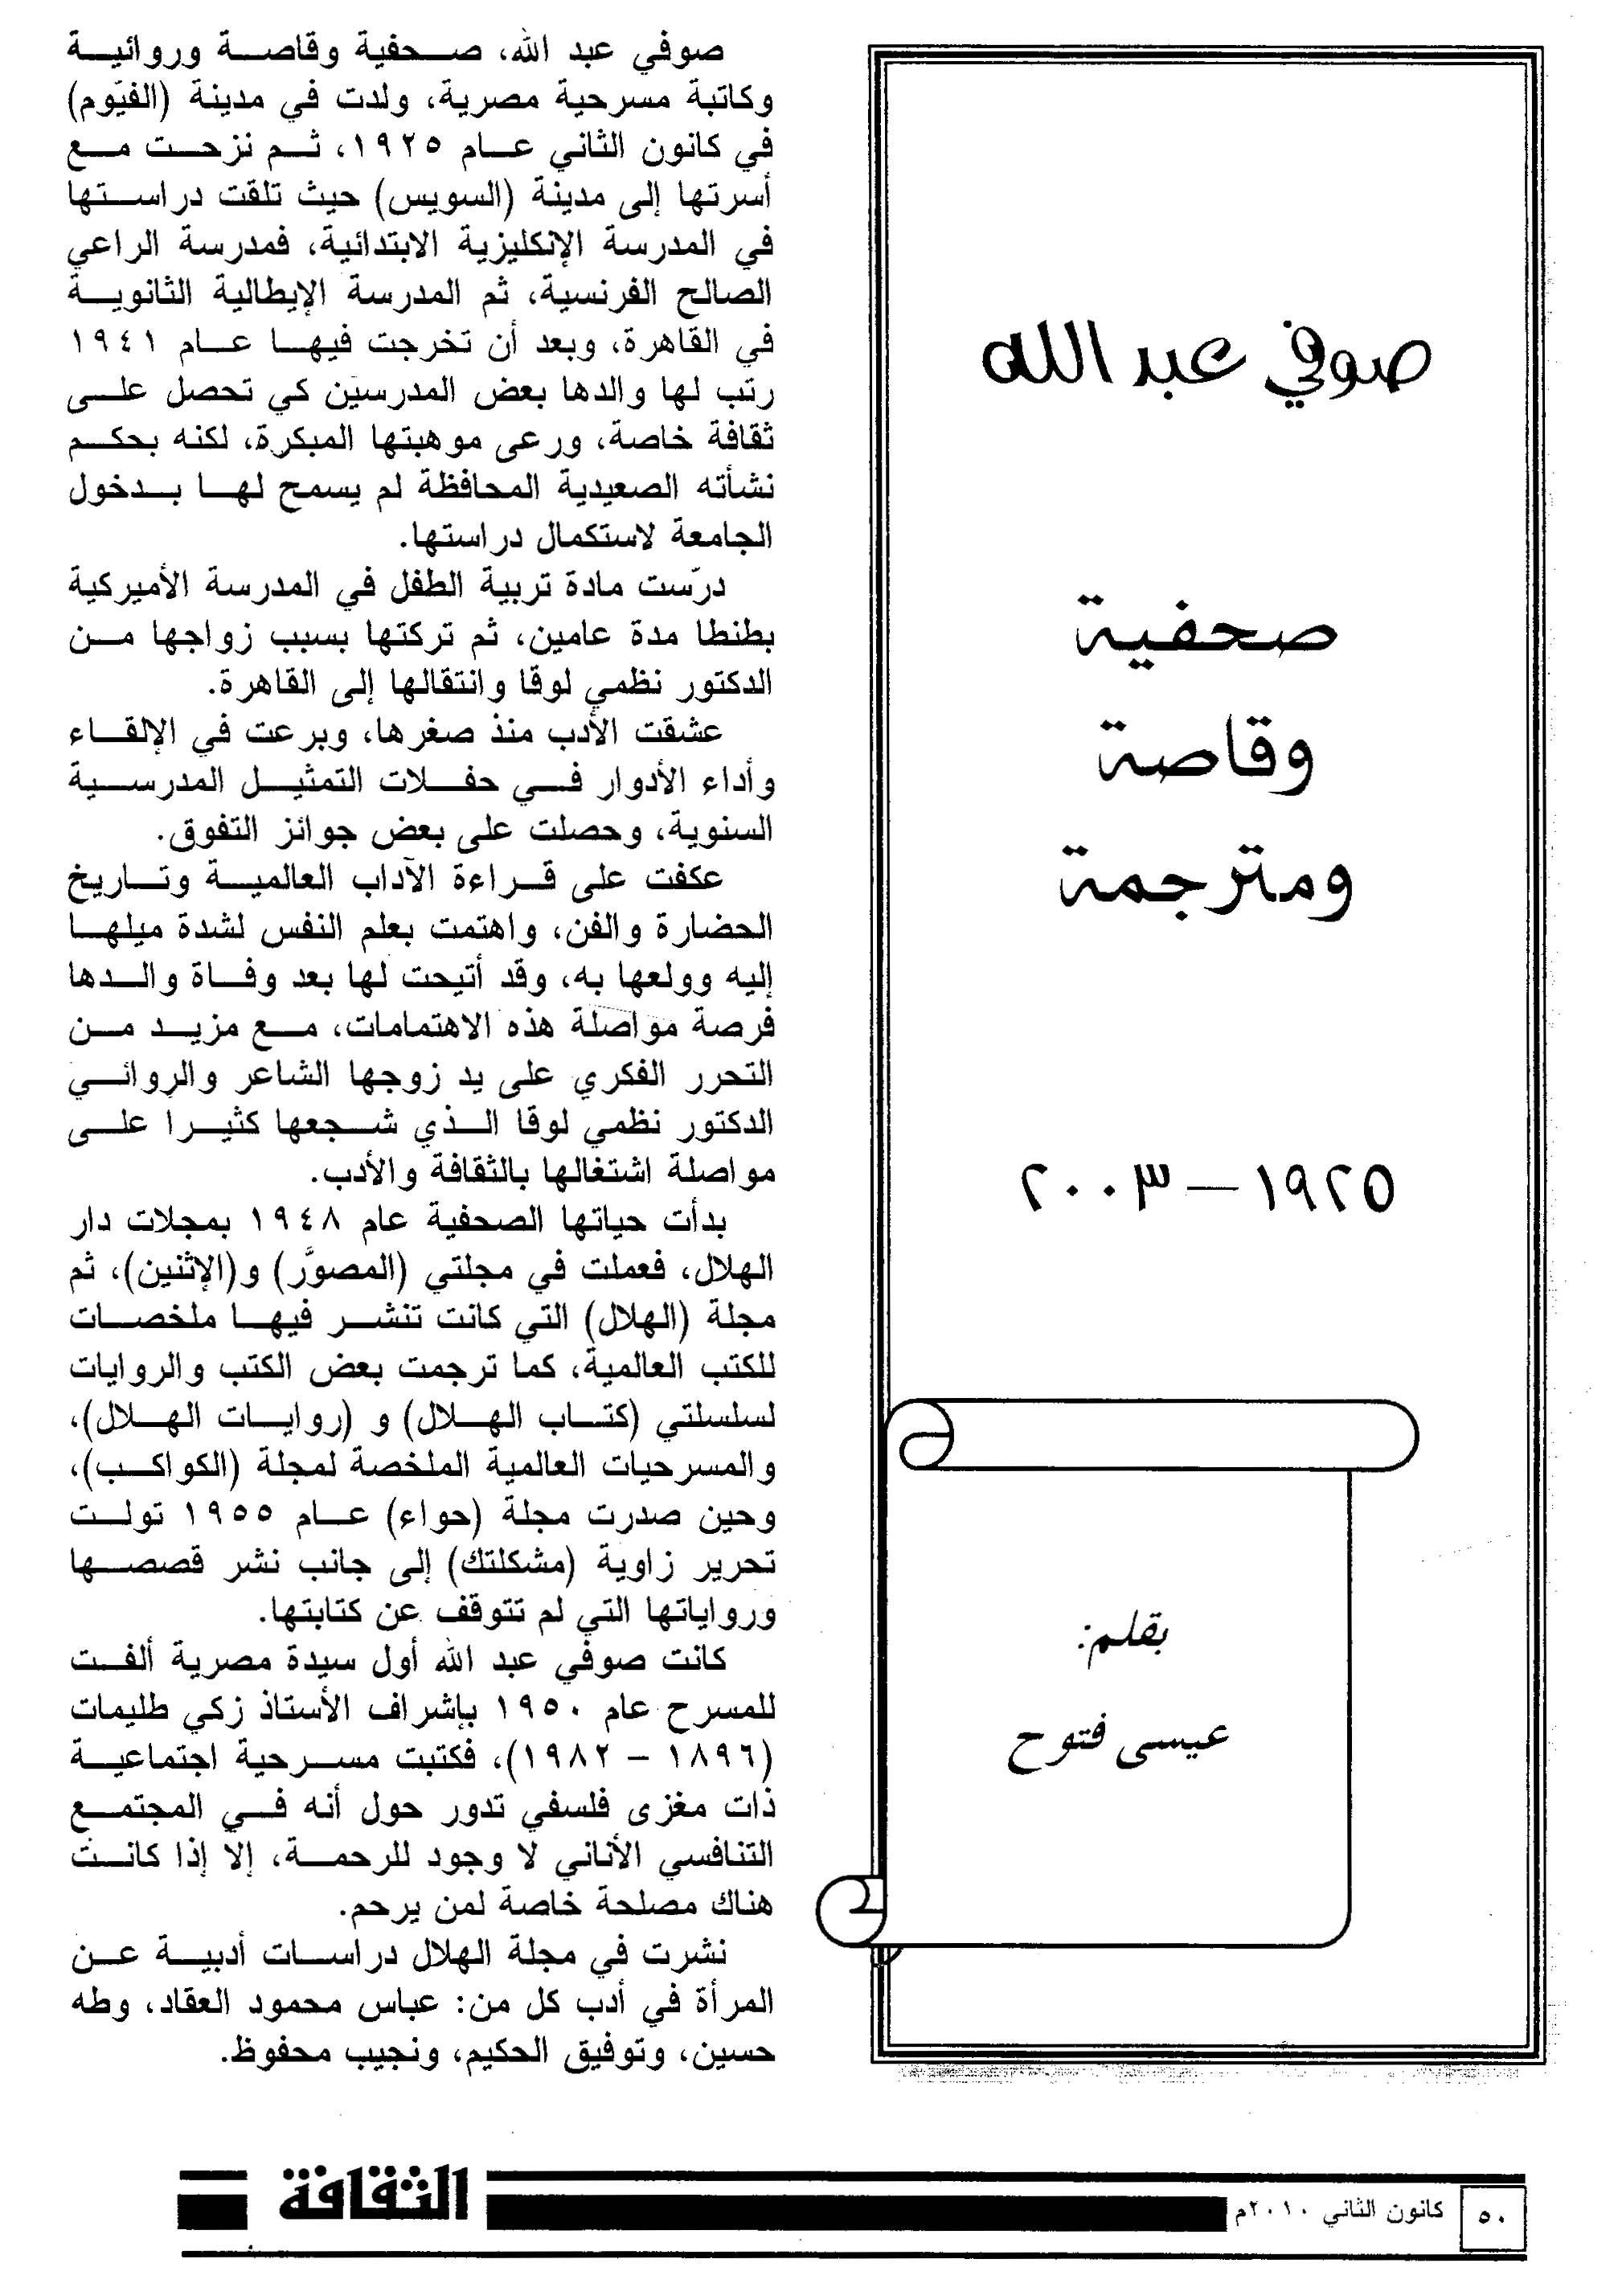 صوفي عبد الله
صحفية
وقاصة
ومترجمة
١٩٢٥ – ٢٠٠٣
بقلم:
عيسى فتوح
صوفي عبد الله، صحفية وقاصة وروائية
وكاتبة مسرحية مصرية، ولدت في مدينة (الفيّوم)
في كانون الثاني عام ١٩٢٥، ثم نزحت مع
أسرتها إلى مدينة (السويس) حيث تلقت دراستها
في المدرسة الإنكليزية الابتدائية، فمدرسة الراعي
الصالح الفرنسية، ثم المدرسة الإيطالية الثانوية
في القاهرة، وبعد أن تخرجت فيها عام ١٩٤١
رتب لها والدها بعض المدرسين كي تحصل على
ثقافة خاصة، ورعى موهبتها المبكرة، لكنه بحكم
نشأته الصعيدية المحافظة لم يسمح لها بدخول
الجامعة لاستكمال دراستها.
درّست مادة تربية الطفل في المدرسة الأميركية
بطنطا مدة عامين، ثم تركتها بسبب زواجها من
الدكتور نظمي لوقا وانتقالها إلى القاهرة.
عشقت الأدب منذ صغرها، وبرعت في الإلقاء
وأداء الأدوار في حفلات التمثيل المدرسية
السنوية، وحصلت على بعض جوائز التفوق.
عكفت على قراءة الآداب العالمية وتاريخ
الحضارة والفن، واهتمت بعلم النفس لشدة ميلها
إليه وولعها به، وقد أتيحت لها بعد وفاة والدها
فرصة مواصلة هذه الاهتمامات، مع مزيد من
التحرر الفكري على يد زوجها الشاعر والروائي
الدكتور نظمي لوقا الذي شجعها كثيراً على
مواصلة اشتغالها بالثقافة والأدب.
بدأت حياتها الصحفية عام ١٩٤٨ بمجلات دار
الهلال، فعملت في مجلتي (المصوَّر) و(الإثنين)، ثم
مجلة (الهلال) التي كانت تنشر فيها ملخصات
للكتب العالمية، كما ترجمت بعض الكتب والروايات
لسلسلتي (كتاب الهلال) و (روايات الهلال)،
والمسرحيات العالمية الملخصة لمجلة (الكواكب)،
وحين صدرت مجلة (حواء) عام ١٩٥٥ تولت
تحرير زاوية (مشكلتك) إلى جانب نشر قصصها
ورواياتها التي لم تتوقف عن كتابتها.
كانت صوفي عبد الله أول سيدة مصرية ألفت
للمسرح عام ١٩٥٠ بإشراف الأستاذ زكي طليمات
(١٨٩٦ – ١٩٨٢)، فكتبت مسرحية اجتماعية
ذات مغزى فلسفي تدور حول أنه في المجتمع
التنافسي الأناني لا وجود للرحمة، إلا إذا كانت
هناك مصلحة خاصة لمن يرحم.
نشرت في مجلة الهلال دراسات أدبية عن
المرأة في أدب كل من: عباس محمود العقاد، وطه
حسين، وتوفيق الحكيم، ونجيب محفوظ.
٥٠ كانون الثاني ٢٠١٠م الثقافة